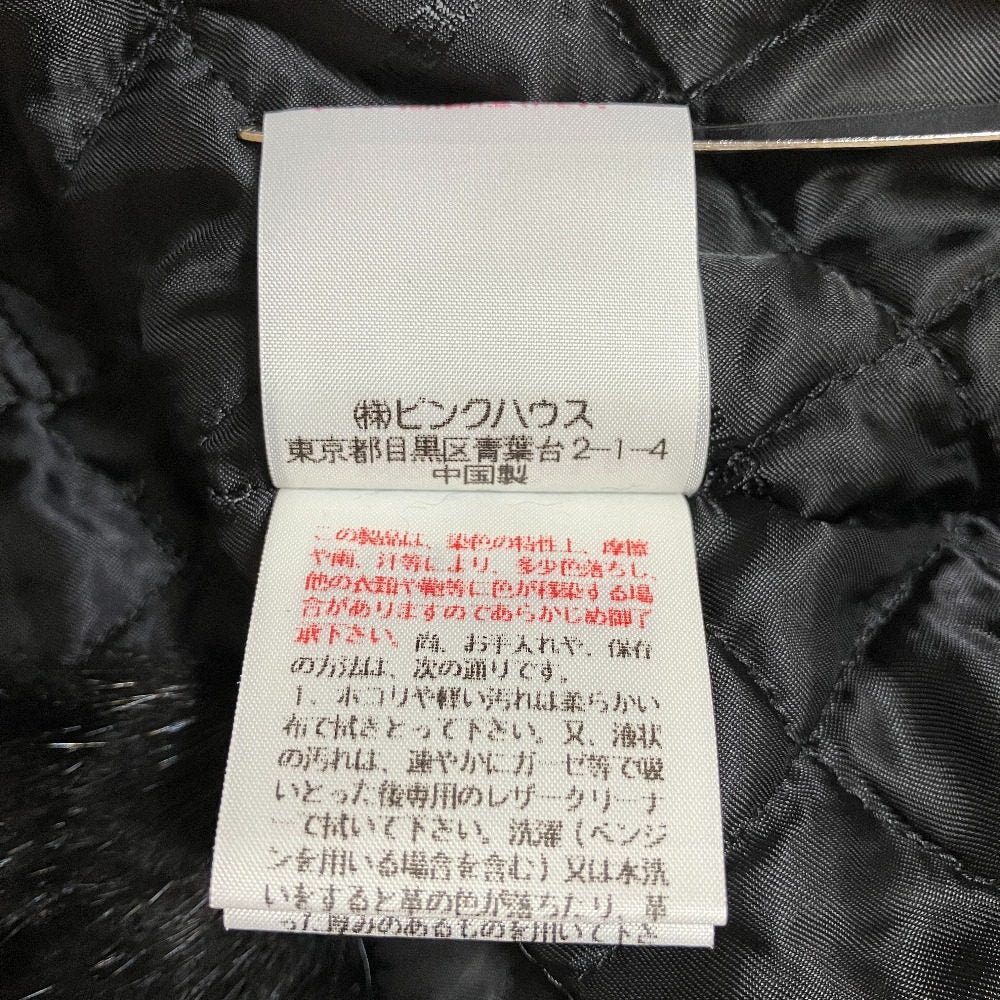 ㈱ピンクハウス
東京都目黒区青葉台2-1-4
中国製
この製品は、染色の特性上、摩擦
や雨、汗等により、多少色落ちし、
他の衣類や鞄等に色が移染する場
合がありますのであらかじめ御了
承下さい。尚、お手入れや、保存
の方法は、次の通りです。
1、ホコリや軽い汚れは柔らかい
布で拭きとって下さい。又、液状
の汚れは、速やかにガーゼ等で吸
いとった後専用のレザークリーナ
ーで拭いて下さい。洗濯（ベンジ
ンを用いる場合を含む）又は水洗
いをすると革の色が落ちたり、革
った厚みのあるものを用いて下さ